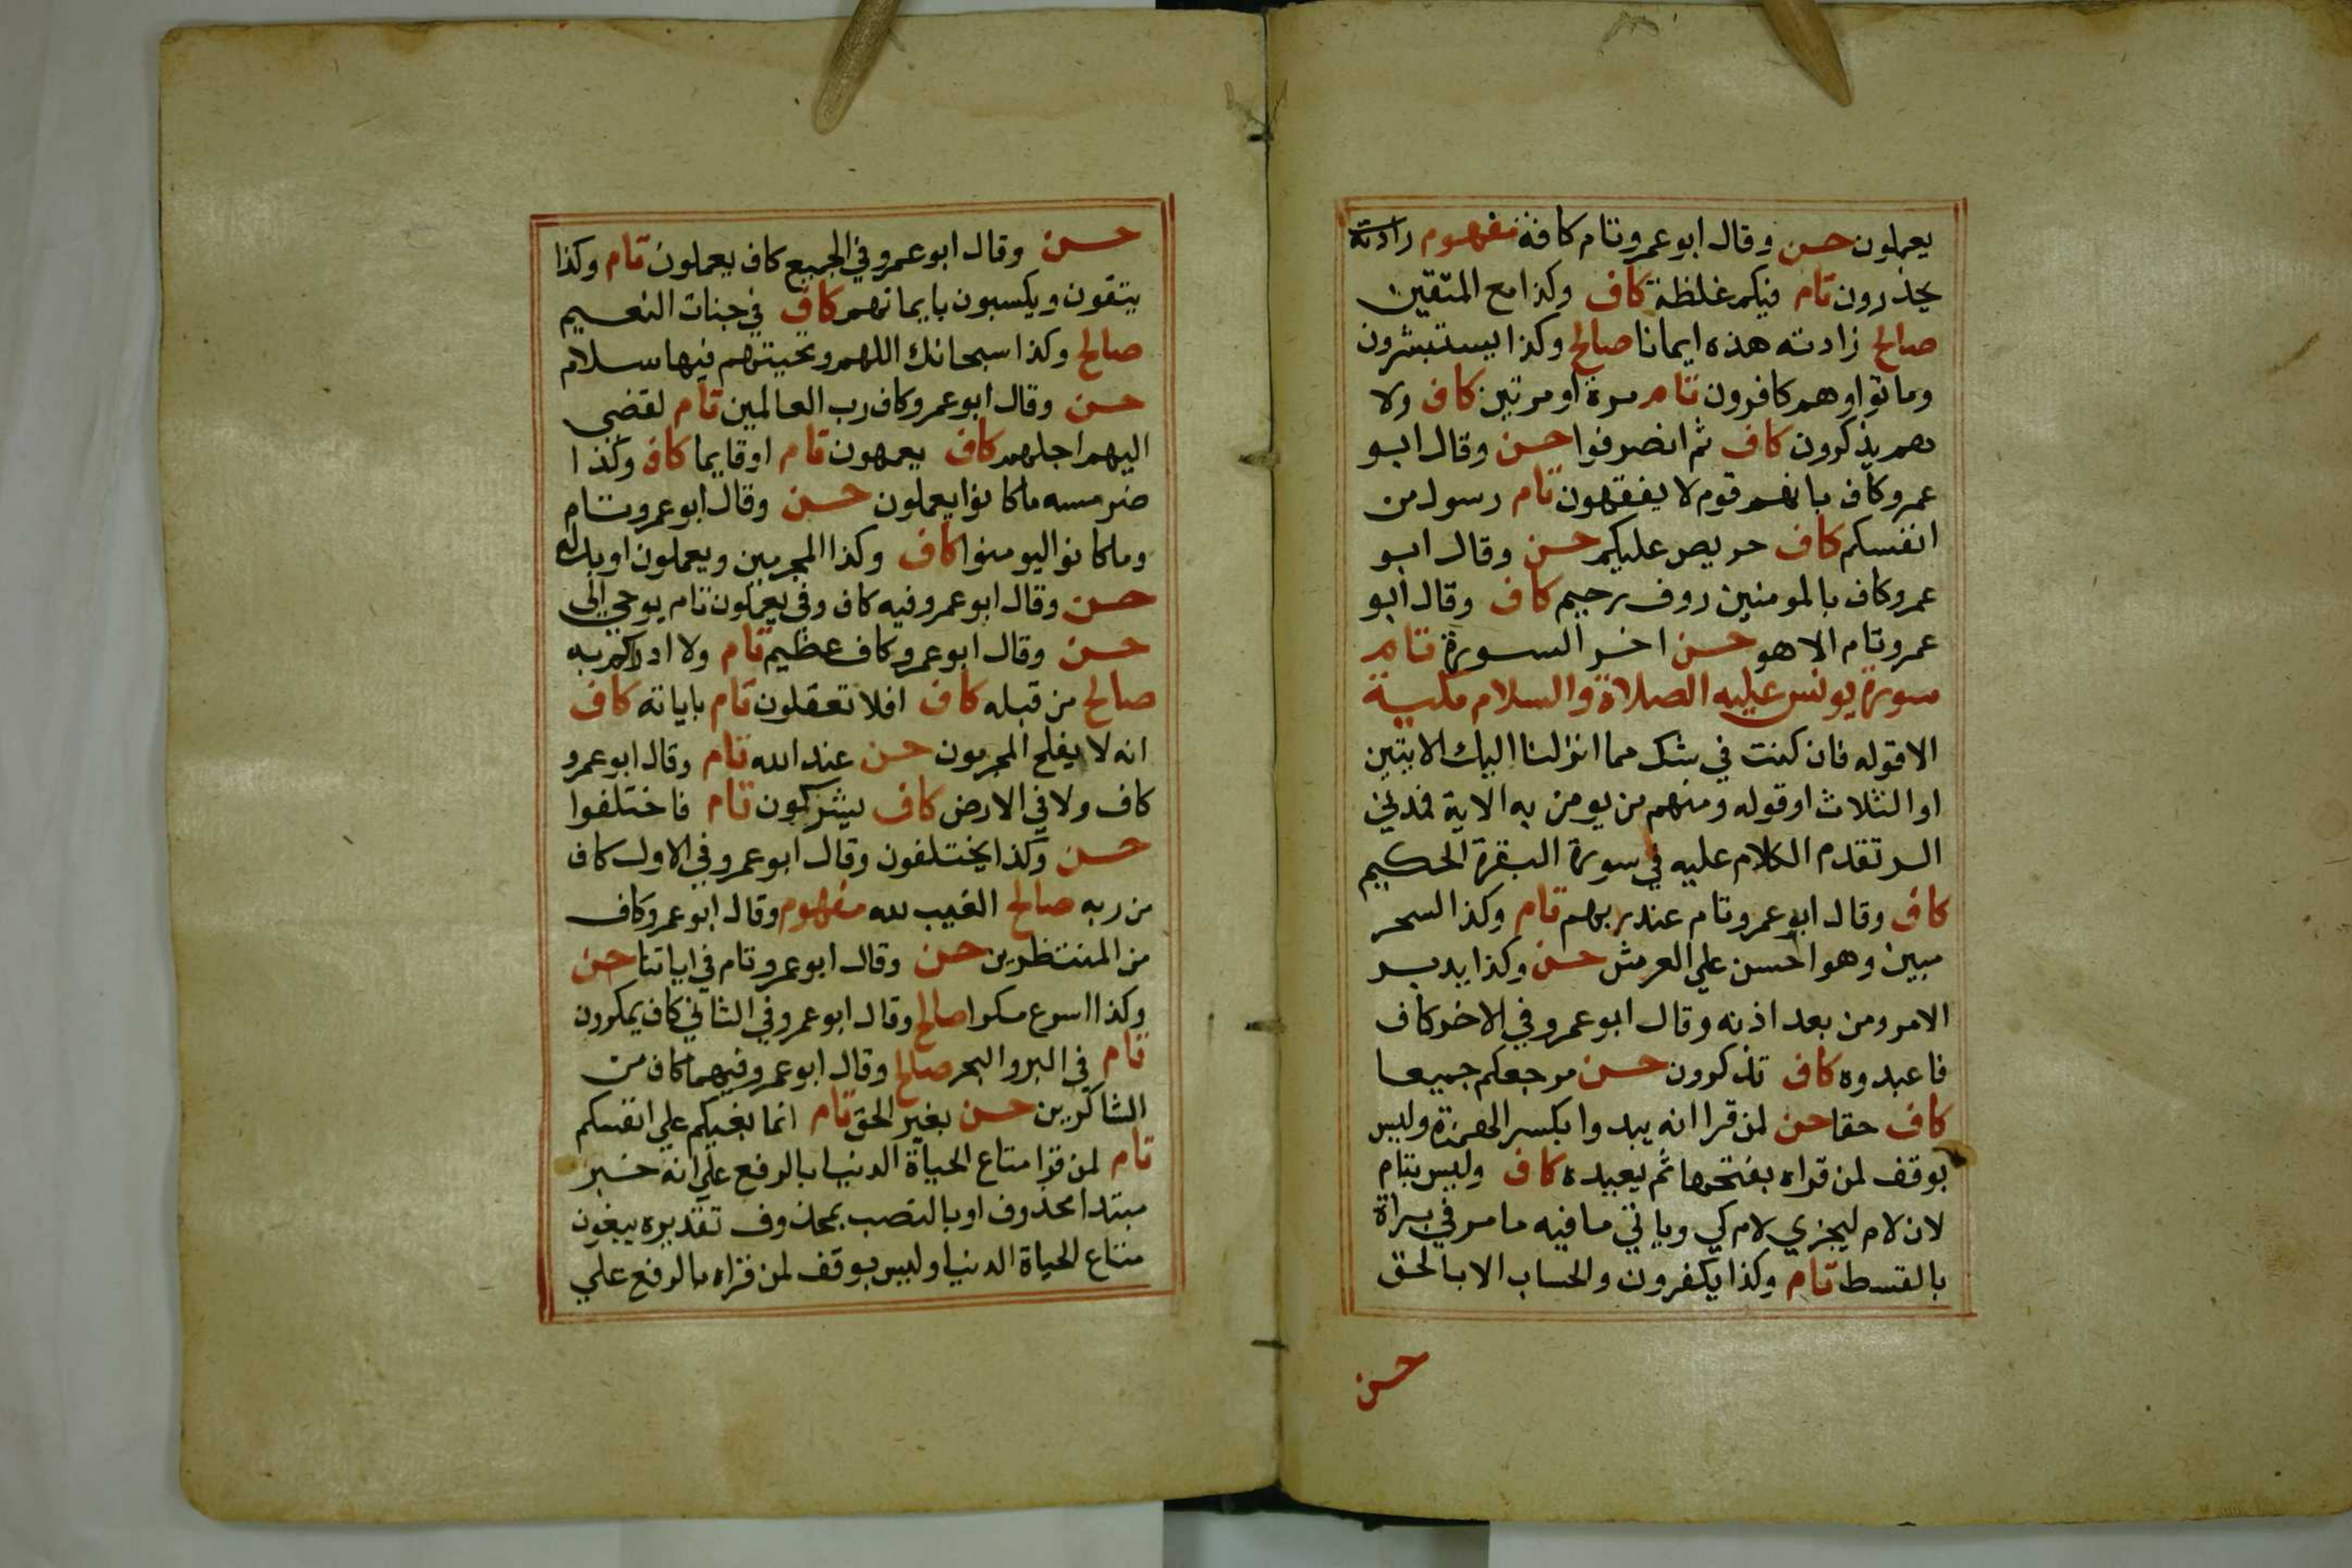 يعملون حسن وقال ابو عمرو تام كافة مفهوم
يحذرون تام فيكم غلظة كاف وكذا مع المتقين
صالح زادته هذه ايمانا صالح وكذا يستبشرون
وماتوا وهم كافرون تام مرة او مرتين كاف ولا
هم يذكرون كاف ثم انصرفوا حسن وقال ابو
عمرو كاف بانهم قوم لا يفقهون تام رسول من
انفسكم كاف حريص عليكم حسن وقال ابو
عمرو كاف بالمومنين روف رحيم كاف وقال ابو
عمرو تام الا هو حسن اخر السورة تام
سورة يونس عليه الصلاة والسلام مكية
الا قوله فان كنت في شك مما انزلنا اليك الايتين
او الثلاث او قوله ومنهم من يومن به الاية فمدني
الر تقدم الكلام عليه في سورة البقرة الحكيم
كاف وقال ابو عمرو تام عند ربهم تام وكذا السحر
مبين وهو احسن علي العرش حسن وكذا يدبر
الامر ومن بعد اذنه وقال ابو عمرو في الاخر كاف
فاعبدوه كاف تذكرون حسن مرجعكم جميعا
كاف حقا حسن لمن قرا انه يبدوا بكسر الهمزة وليس
بوقف لمن قراه بفتحها ثم يعيده كاف وليس بتام
لان لام ليجزي لام كي وياتي ما فيه ما مر في براة
بالقسط تام وكذا يكفرون والحساب الا بالحق
حسن
حسن وقال ابو عمرو في الجميع كاف يعملون تام وكذا
يتقون ويكسبون بايمانهم كاف في جنات النعيم
صالح وكذا سبحانك اللهم وتحيتهم فيها سلام
حسن وقال ابو عمرو كاف رب العالمين تام لقضي
اليهم اجلهم كاف يعمهون تام او قايما كاف وكذا
ضر مسه ما كانوا يعملون حسن وقال ابو عمرو تام
وما كانوا ليومنوا كاف وكذا المجرمين ويعملون او بدله
حسن وقال ابو عمرو فيه كاف وفي يعملون تام يوحي الي
حسن وقال ابو عمرو كاف عظيم تام ولا ادراكم به
صالح من قبله كاف افلا تعقلون تام باياته كاف
انه لا يفلح المجرمون حسن عند الله تام وقال ابو عمرو
كاف ولا في الارض كاف يشركون تام فاختلفوا
حسن وكذا يختلفون وقال ابو عمرو في الاول كاف
من ربه صالح الغيب لله مفهوم وقال ابو عمرو كاف
من المنتظرين حسن وقال ابو عمرو تام في اياتنا حسن
وكذا اسرع مكرا صالح وقال ابو عمرو في الثاني كاف يمكرون
تام في البر والبحر صالح وقال ابو عمرو فيهما كاف من
الشاكرين حسن بغير الحق تام انما بغيكم علي انفسكم
تام لمن قرا متاع الحياة الدنيا بالرفع علي انه خبر
مبتدا محذوف او بالنصب بمحذوف تقديره يبغون
متاع الحياة الدنيا وليس بوقف لمن قراه بالرفع علي